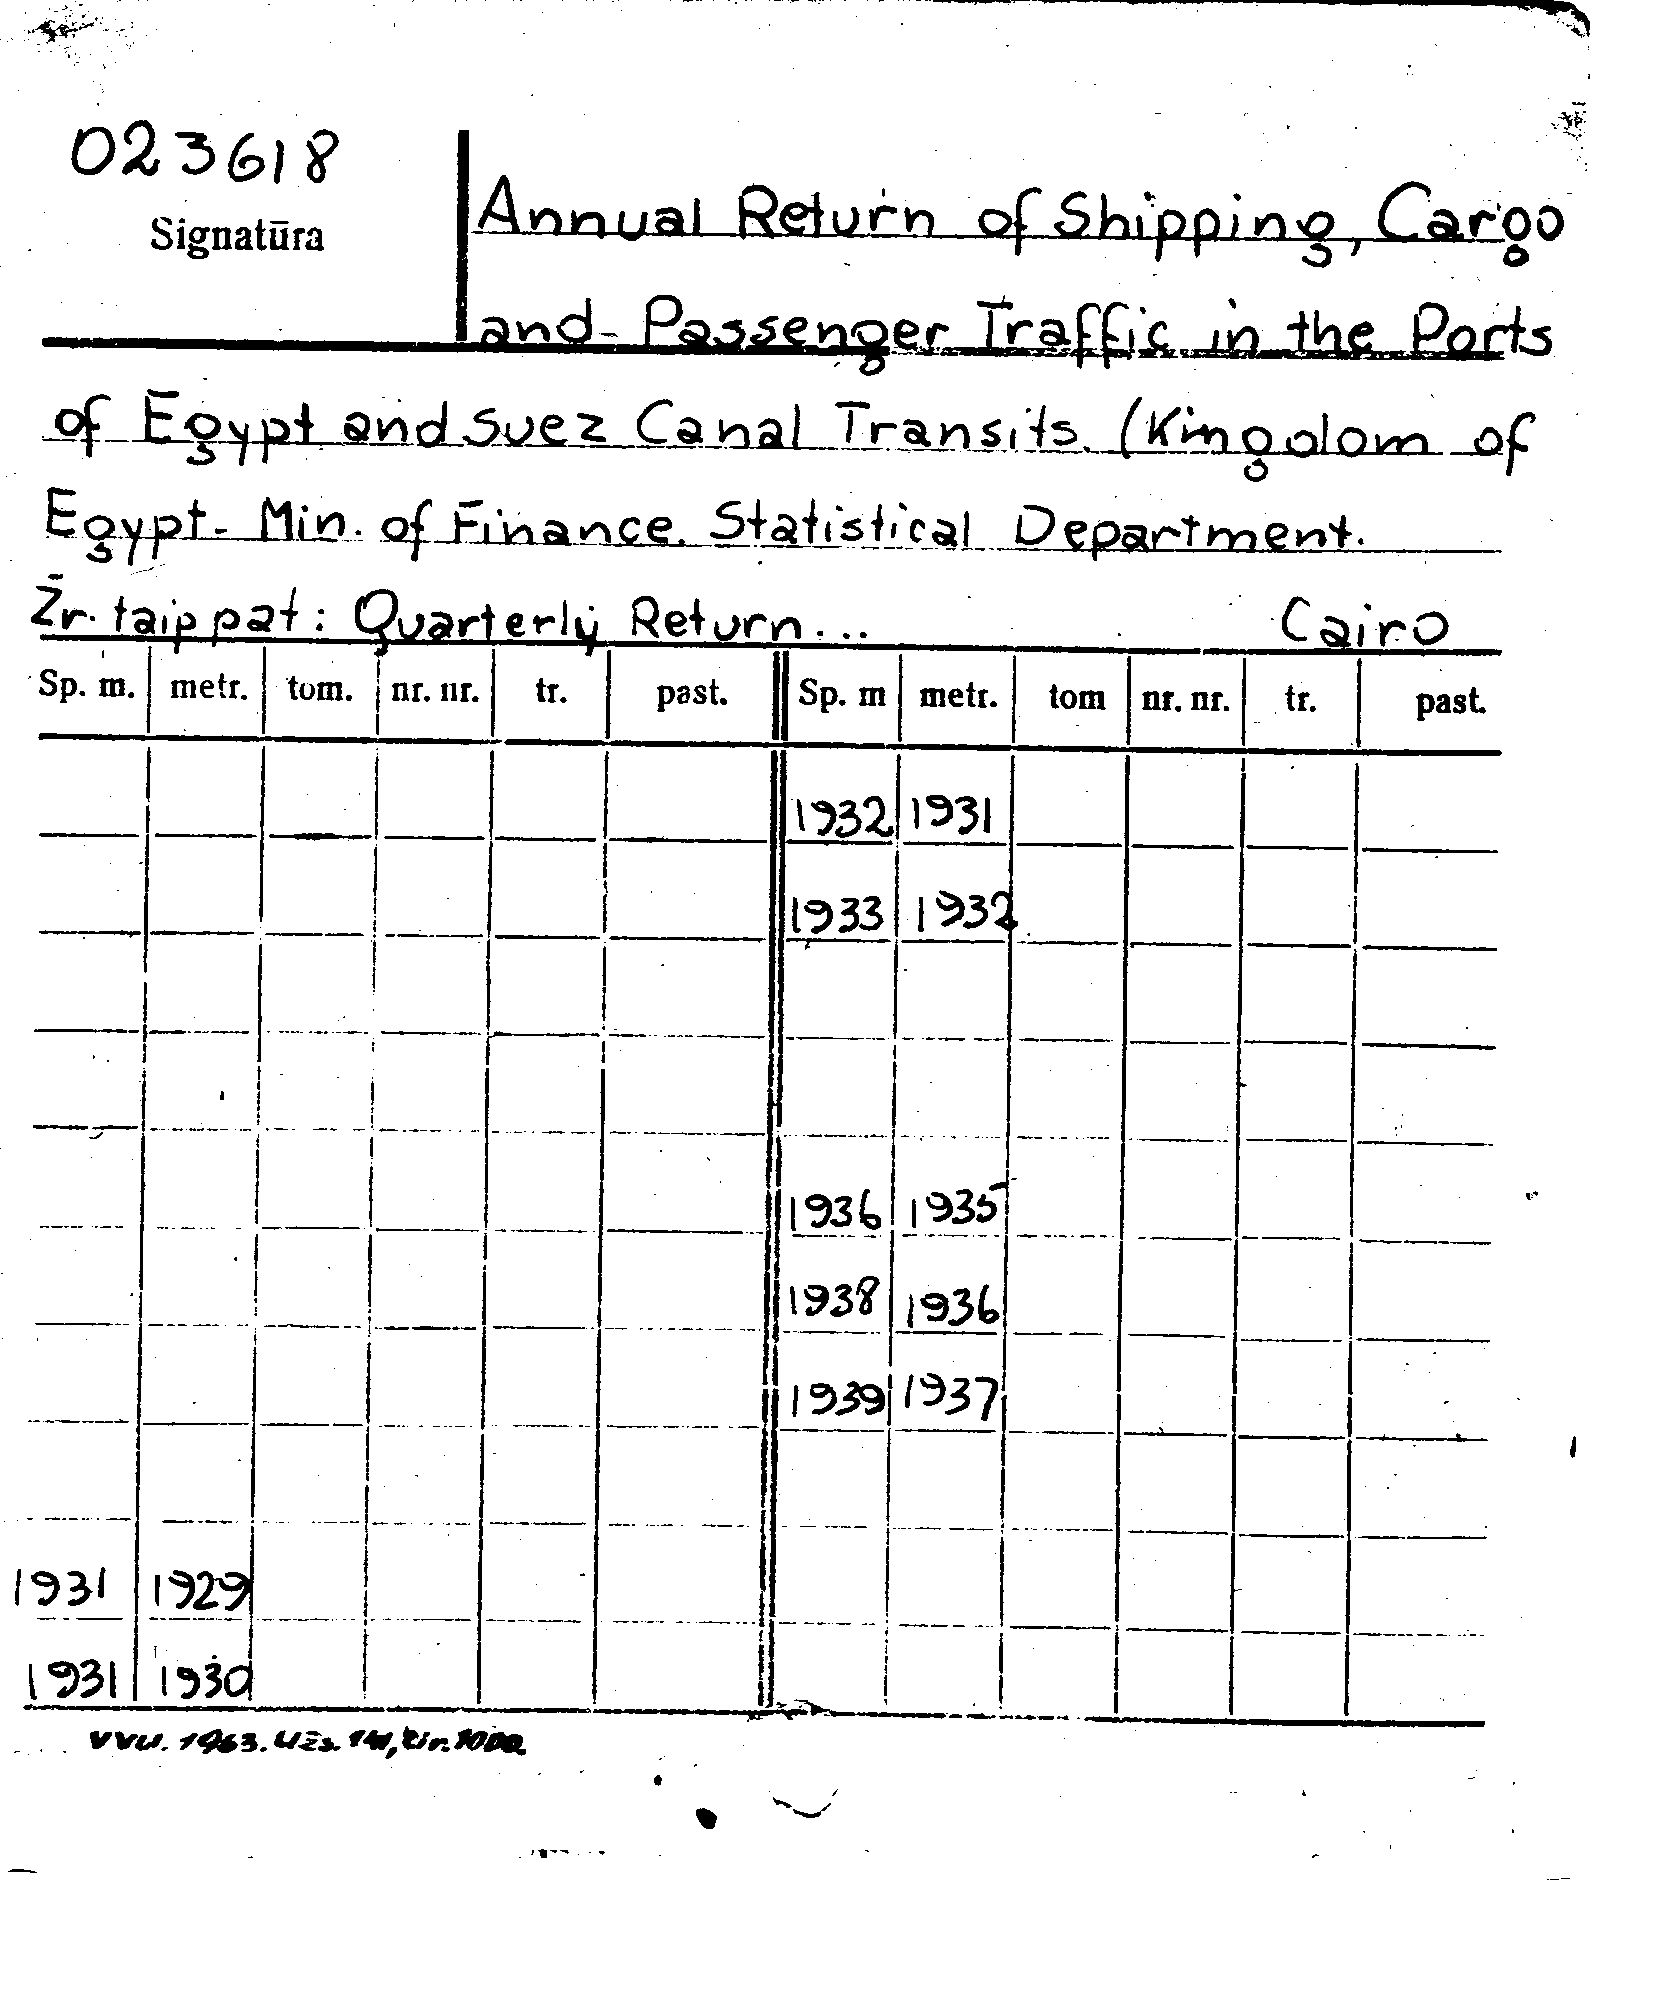 023618
Signatūra
Annual Return of Shipping, Cargo
and Passenger Traffic in the Ports
of Egypt and Suez Canal Transits. (Kingdom of
Egypt- Min. of Finance. Statistical Department.
Žr. taip pat: Quarterly Return... Cairo
Sp. m. metr. tom. nr. nr. tr. past. Sp. m metr. tom nr. nr. tr. past.
1932 1931
1933 1932
1936 1935
1938 1936
1939 1937
1931 1929
1931 1930
VVU. 1963. Užs. 141, tir. 1000